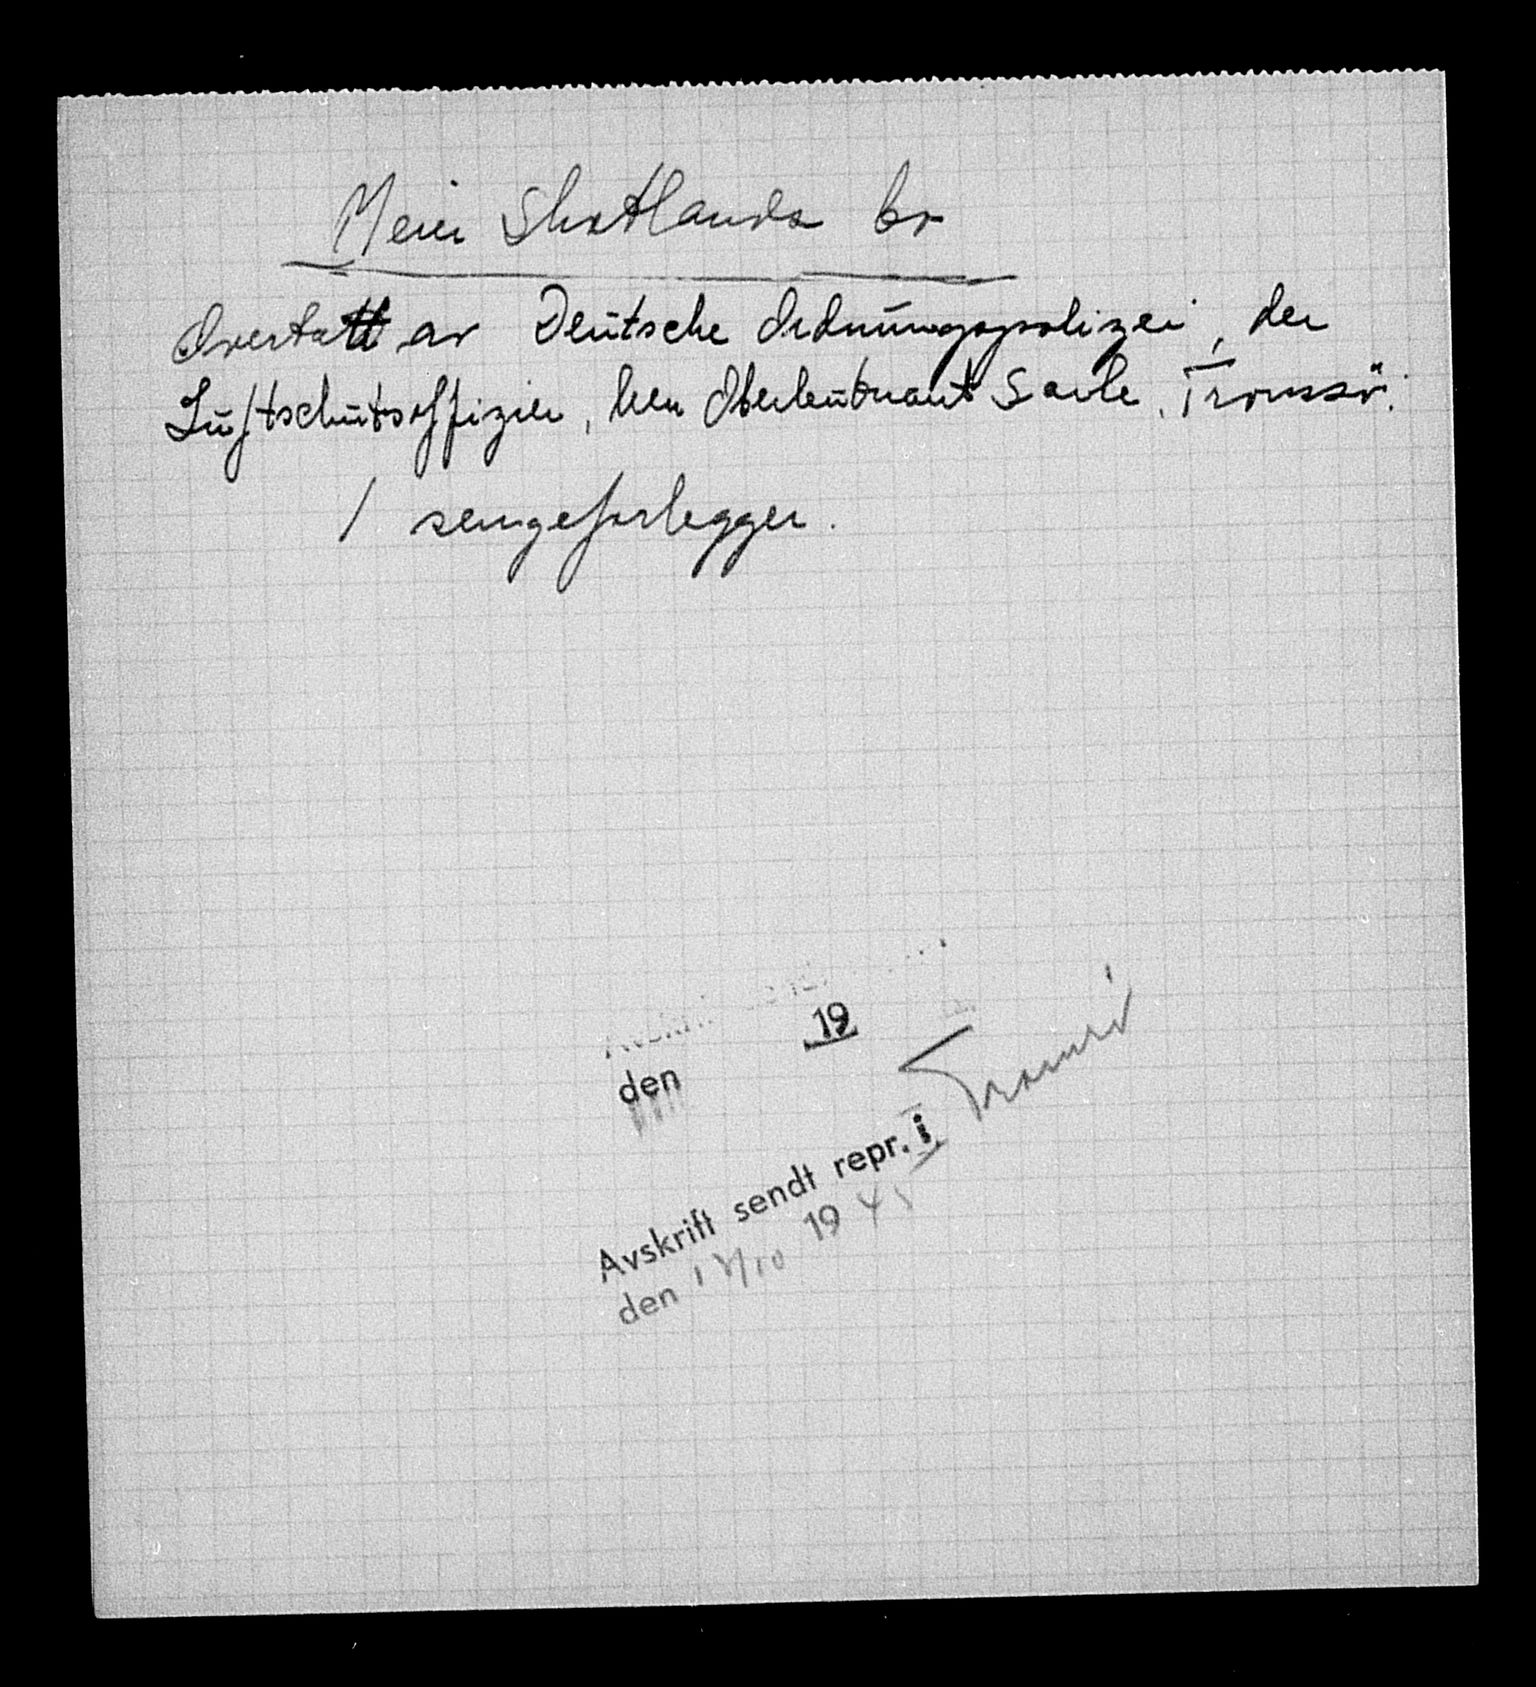 Meier Shotlands bo
Overtatt av Deutsche Ordnungspolizei, der
Luftschutsoffizier, herr Oberleutnant Sarle, Tromsö.
1 sengeforlegger.
Avskrift
19
den
Tromsö
Avskrift sendt repr. i
den 19 45